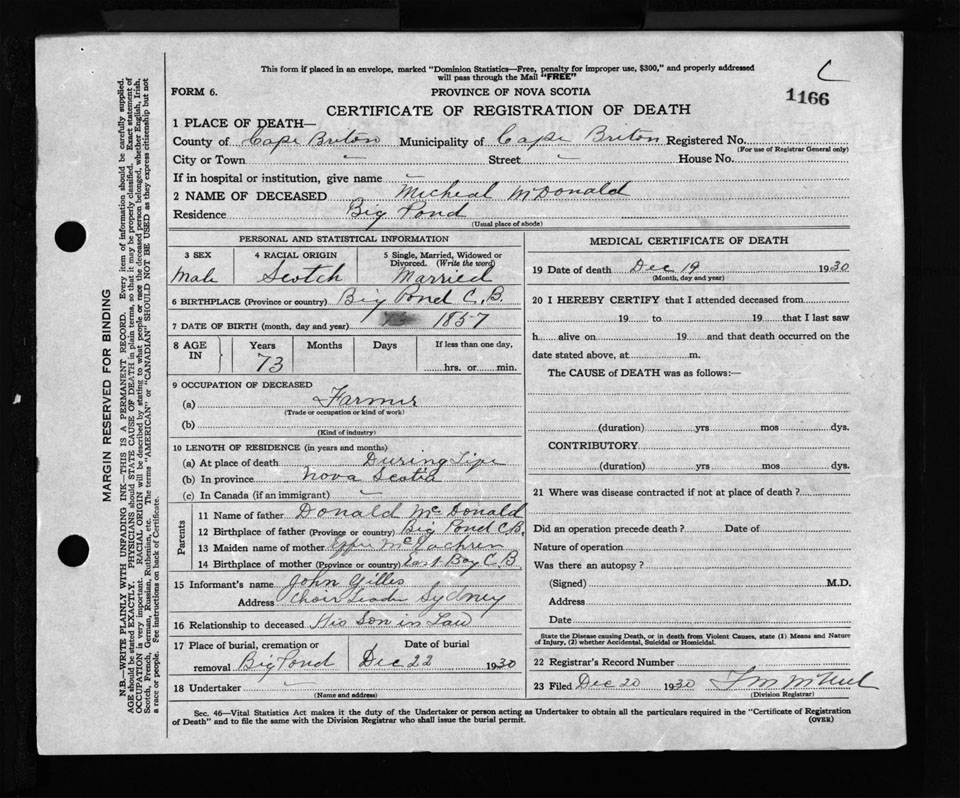 This form if placed in an envelope, marked "Dominion Statistics—Free, penalty for improper use, $300," and properly addressed
will pass through the Mail "FREE"
FORM 6. PROVINCE OF NOVA SCOTIA
1166
CERTIFICATE OF REGISTRATION OF DEATH
1 PLACE OF DEATH—
County of Cape Briton Municipality of Cape Briton Registered No.
(For use of Registrar General only)
City or Town – Street – House No.
If in hospital or institution, give name –
2 NAME OF DECEASED Micheal McDonald
Residence Big Pond
(Usual place of abode)
PERSONAL AND STATISTICAL INFORMATION
3 SEX 4 RACIAL ORIGIN 5 Single, Married, Widowed or
Divorced. (Write the word)
Male Scotch Married
6 BIRTHPLACE (Province or country) Big Pond C.B.
7 DATE OF BIRTH (month, day and year) 1857
8 AGE IN Years Months Days If less than one day,
73 hrs. or min.
9 OCCUPATION OF DECEASED
(a) Farmer
(Trade or occupation or kind of work)
(b)
(Kind of industry)
10 LENGTH OF RESIDENCE (in years and months)
(a) At place of death During Life
(b) In province Nova Scotia
(c) In Canada (if an immigrant) –
Parents
11 Name of father Donald McDonald
12 Birthplace of father (Province or country) Big Pond C.B.
13 Maiden name of mother Effie McEachren
14 Birthplace of mother (Province or country) East Bay C.B.
15 Informant's name John Gillis
Address Sydney
16 Relationship to deceased His Son in Law
17 Place of burial, cremation or Date of burial
removal Big Pond Dec 22 1930
18 Undertaker –
(Name and address)
MEDICAL CERTIFICATE OF DEATH
19 Date of death Dec 19 1930
(Month, day and year)
20 I HEREBY CERTIFY that I attended deceased from
19 to 19 that I last saw
h alive on 19 and that death occurred on the
date stated above, at m.
The CAUSE of DEATH was as follows:—
(duration) yrs mos dys.
CONTRIBUTORY
(duration) yrs mos dys.
21 Where was disease contracted if not at place of death?
Did an operation precede death? Date of
Nature of operation
Was there an autopsy?
(Signed) M.D.
Address
Date
State the Disease causing Death, or in death from Violent Causes, state (1) Means and Nature
of Injury, (2) whether Accidental, Suicidal or Homicidal.
22 Registrar's Record Number
23 Filed Dec 20 1930
(Division Registrar)
Sec. 46—Vital Statistics Act makes it the duty of the Undertaker or person acting as Undertaker to obtain all the particulars required in the "Certificate of Registration
of Death" and to file the same with the Division Registrar who shall issue the burial permit. (OVER)
MARGIN RESERVED FOR BINDING
N.B.—WRITE PLAINLY WITH UNFADING INK—THIS IS A PERMANENT RECORD. Every item of information should be carefully supplied.
AGE should be stated EXACTLY. PHYSICIANS should STATE CAUSE OF DEATH in plain terms, so that it may be properly classified. Exact statement of
OCCUPATION is very important. RACIAL ORIGIN will be described by stating to what people or race the deceased person belonged, whether English, Irish,
Scotch, French, German, Russian, Ruthenian, etc. The terms "AMERICAN" or "CANADIAN" SHOULD NOT BE USED as they express citizenship but not
a race or people. See instructions on back of Certificate.